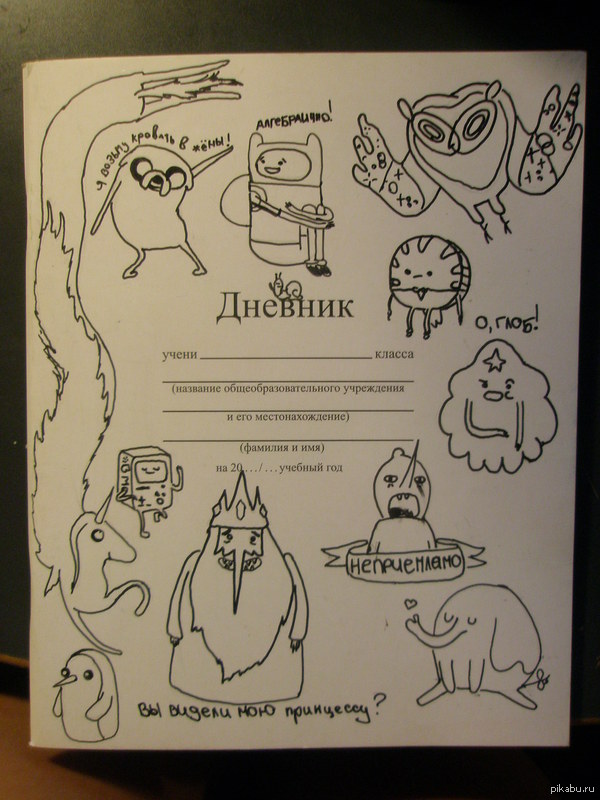 Я возьму кровать в жёны!
АЛГЕБРАИЧНО!
О, ГЛОБ!
Дневник
учени класса
(название общеобразовательного учреждения
и его местонахождение)
(фамилия и имя)
на 20 . . . / . . . учебный год
НЕПРИЕМЛАМО
Вы видели мою принцессу?
pikabu.ru